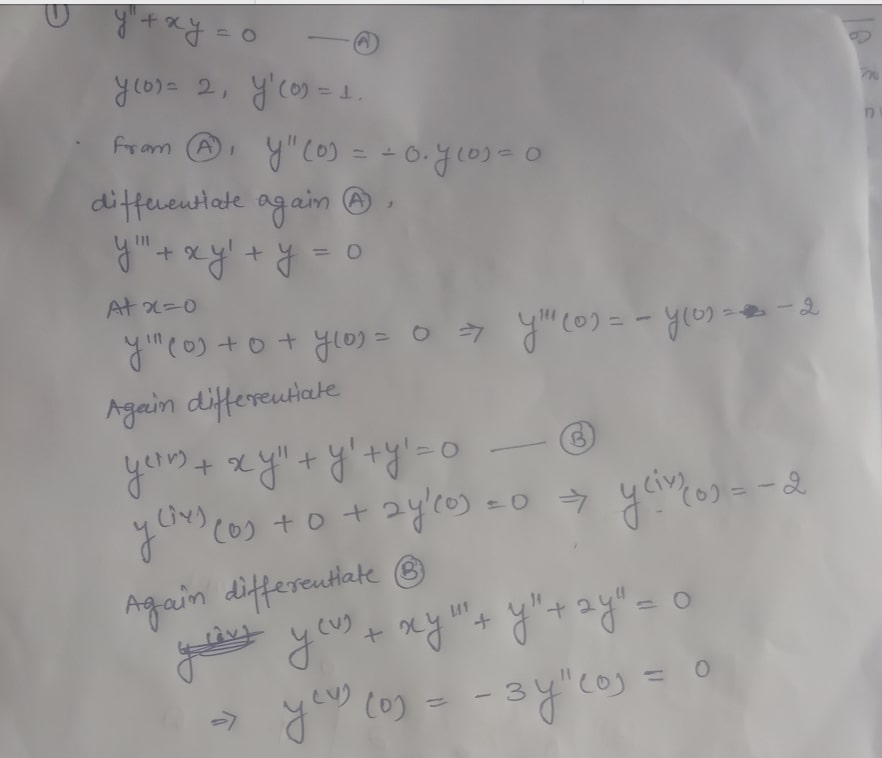 ① y'' + xy = 0 — Ⓐ
y(0) = 2, y'(0) = 1.
From Ⓐ, y''(0) = -0.y(0) = 0
differentiate again Ⓐ,
y''' + xy' + y = 0
At x=0
y'''(0) + 0 + y(0) = 0 ⇒ y'''(0) = - y(0) = -2
Again differentiate
y^(iv) + xy'' + y' + y' = 0 — Ⓑ
y^(iv)(0) + 0 + 2y'(0) = 0 ⇒ y^(iv)(0) = -2
Again differentiate Ⓑ
y^(v) + xy''' + y'' + 2y'' = 0
⇒ y^(v)(0) = -3y''(0) = 0